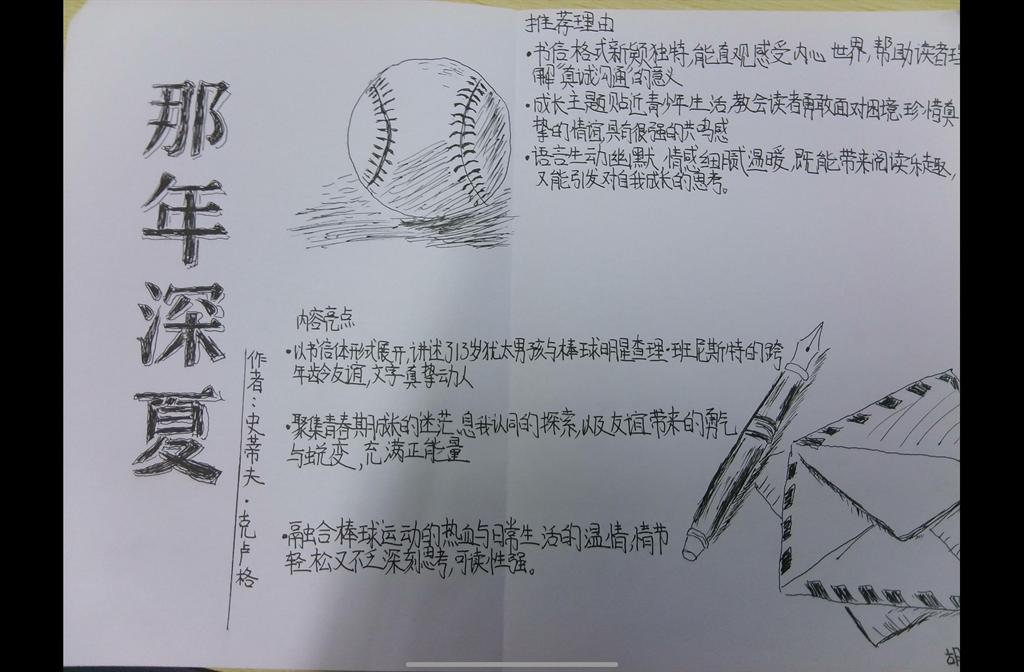 那年深夏
作者:史蒂夫·克卢格
推荐理由
·书信格式新颖独特,能直观感受内心世界,帮助读者理
解“真诚沟通”的意义
·成长主题贴近青少年生活,教会读者勇敢面对困境,珍惜真
挚的情谊,具有很强的共鸣感
·语言生动幽默,情感细腻温暖,既能带来阅读乐趣,
又能引发对自我成长的思考。
内容亮点
·以书信体形式展开,讲述了13岁犹太男孩与棒球明星查理·班尼斯特的跨
年龄友谊,文字真挚动人
·聚集青春期成长的迷茫、息我认同的探索,以及友谊带来的勇气
与蜕变,充满正能量
·融合棒球运动的热血与日常生活的温情,情节
轻松又不乏深刻思考,可读性强。
胡